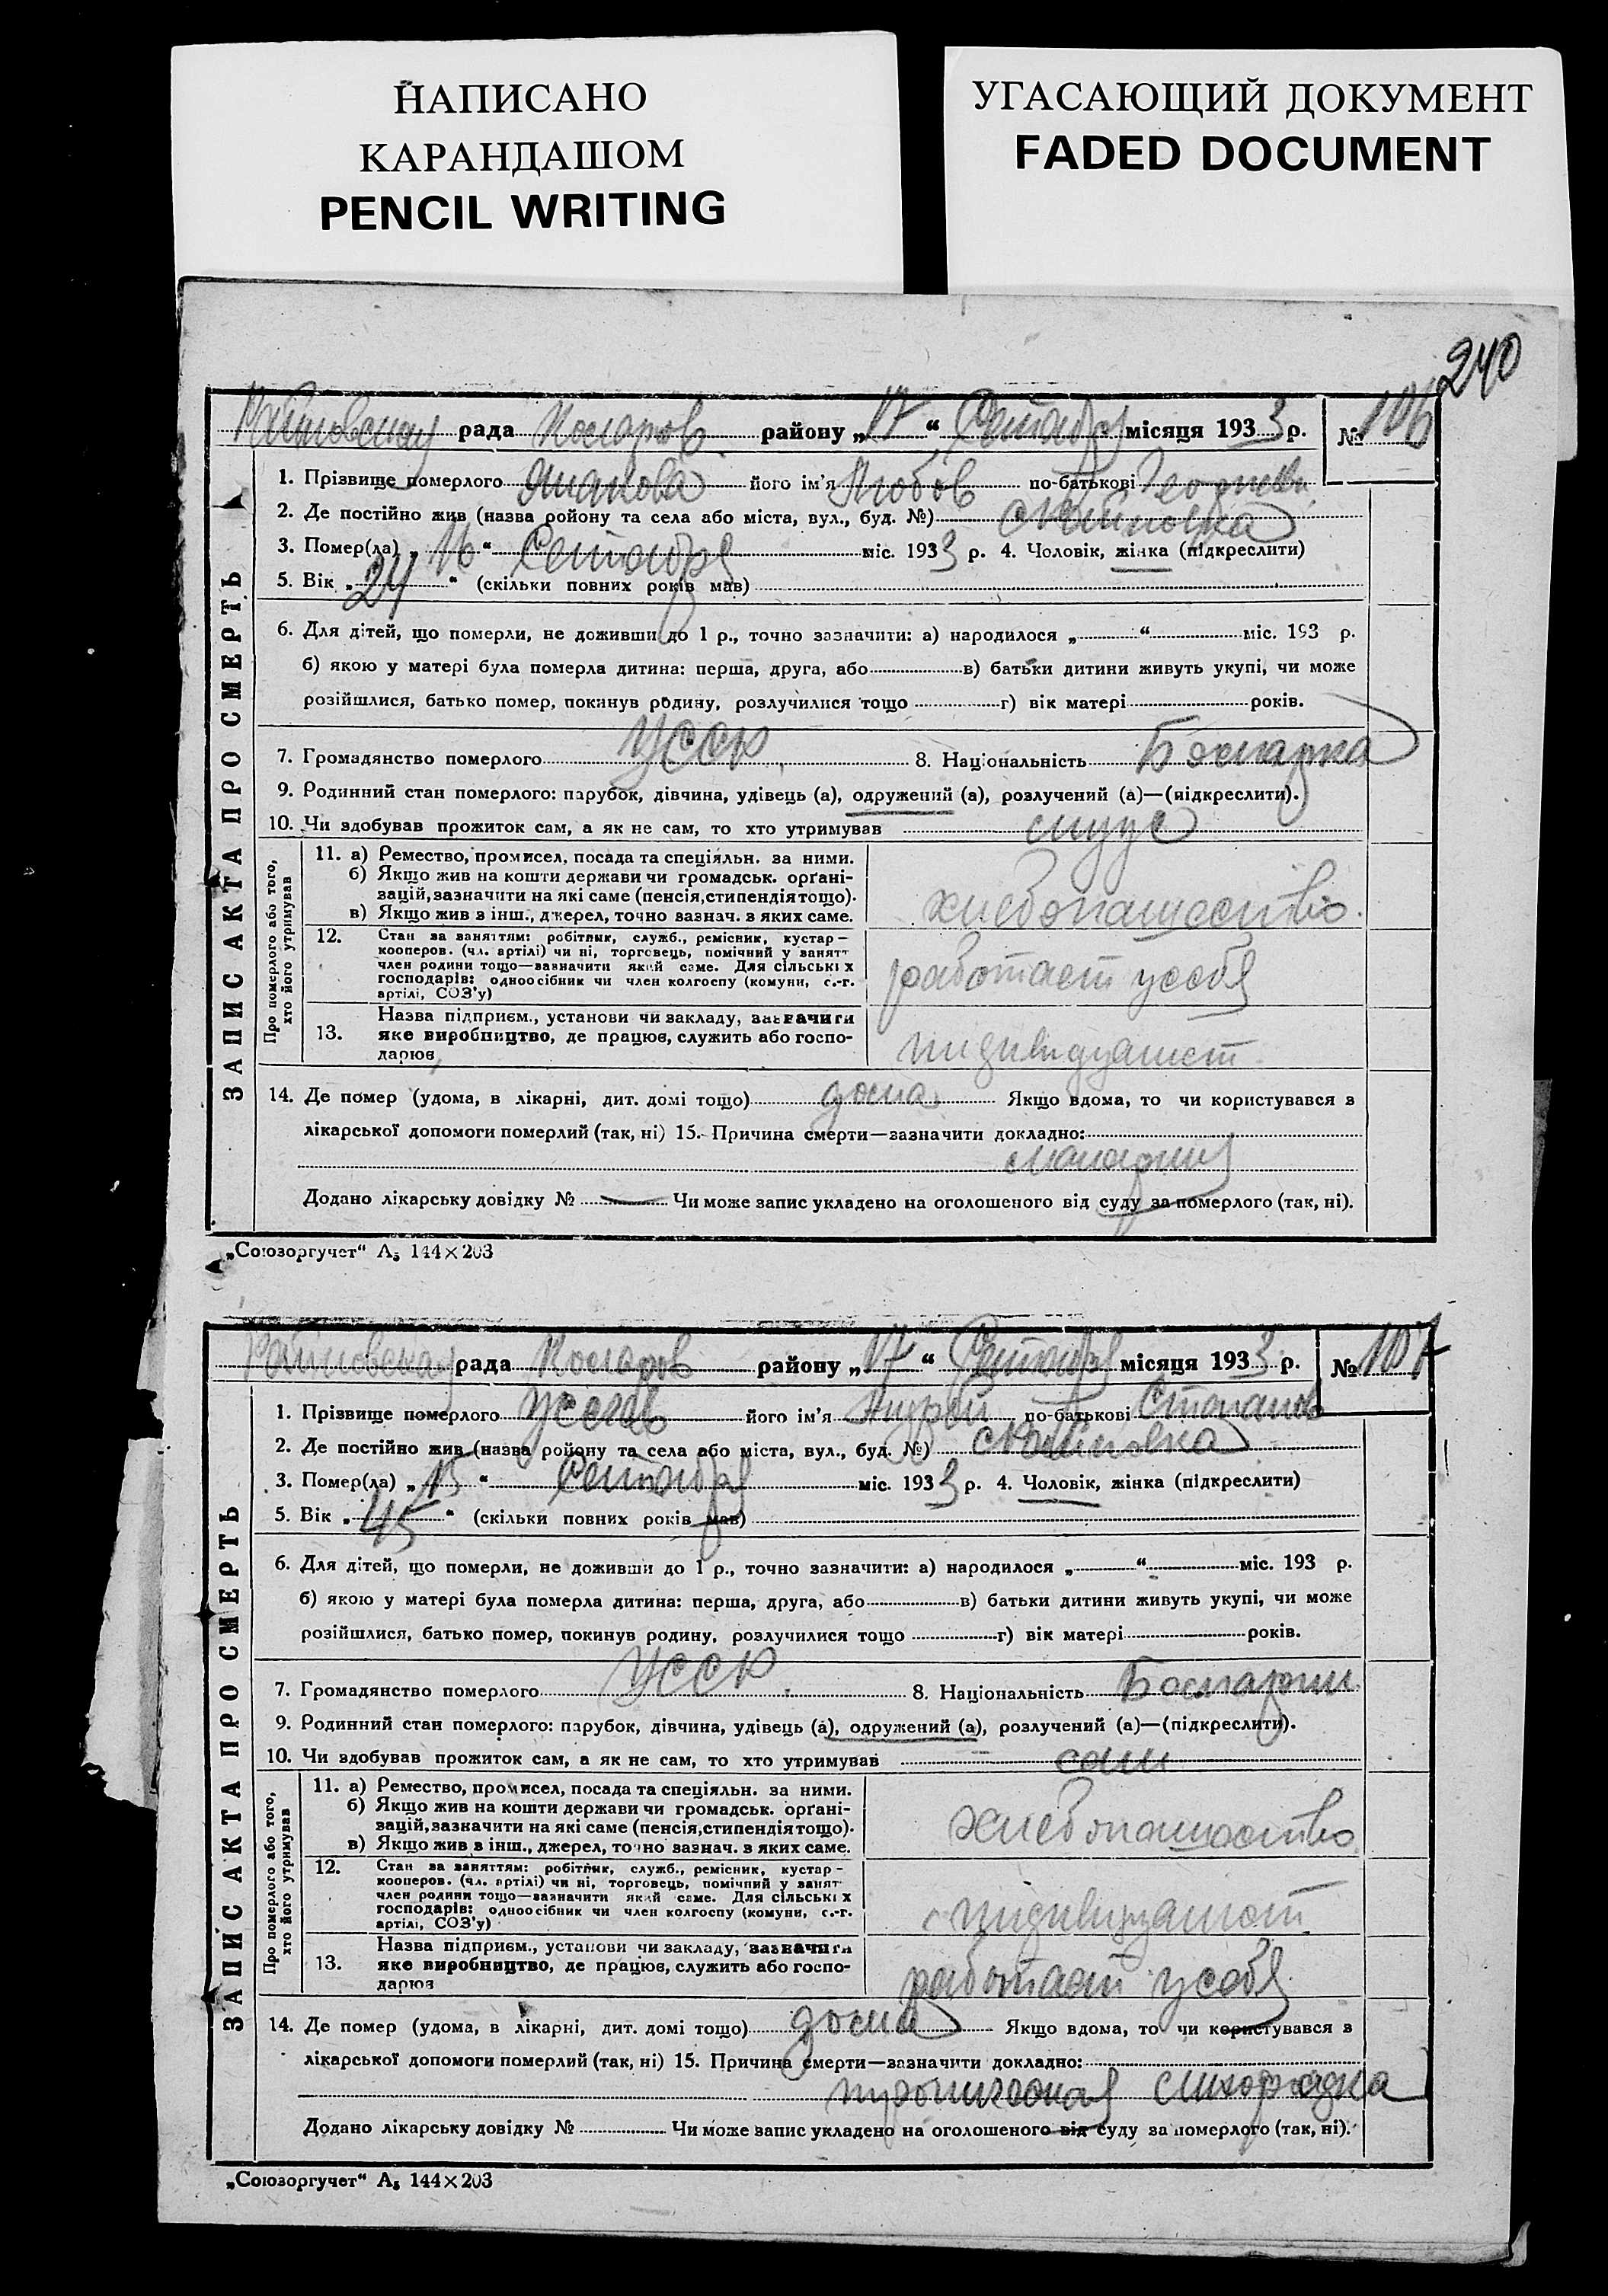 НАПИСАНО
КАРАНДАШОМ
PENCIL WRITING
УГАСАЮЩИЙ ДОКУМЕНТ
FADED DOCUMENT
240
рада района району „17“ Сентября місяця 1933 р. № 106
1. Прізвище померлого його ім'я Любов по-батькові
2. Де постійно жив (назва ройону та села або міста, вул., буд. №)
3. Помер(ла) „16“ Сентября міс. 1933 р. 4. Чоловік, жінка (підкреслити)
5. Вік „24“ (скільки повних років мав)
6. Для дітей, що померли, не доживши до 1 р., точно зазначити: а) народилося „ “ міс. 193 р.
б) якою у матері була померла дитина: перша, друга, або в) батьки дитини живуть укупі, чи може
розійшлися, батько помер, покинув родину, розлучилися тощо г) вік матері років.
7. Громадянство померлого УССР 8. Національність Болгарка
9. Родинний стан померлого: парубок, дівчина, удівець (а), одружений (а), розлучений (а)—(підкреслити).
10. Чи здобував прожиток сам, а як не сам, то хто утримував муж
ЗАПИС АКТА ПРО СМЕРТЬ
Про померлого або того, хто його утримував
11. а) Ремество, промисел, посада та спеціяльн. за ними.
б) Якщо жив на кошти держави чи громадськ. орґані-
зацій, зазначити на які саме (пенсія, стипендія тощо).
в) Якщо жив з інш., джерел, точно зазнач. з яких саме.
хлебопашество
12. Стан за заняттям: робітник, служб., ремісник, кустар—
кооперов. (чл. артілі) чи ні, торговець, помічний у занятт
член родини тощо—зазначити який саме. Для сільських
господарів: одноосібник чи член колгоспу (комуни, с.-г.
артілі, СОЗ'у)
работает у себя
13. Назва підприєм., установи чи закладу, зазначити
яке виробництво, де працює, служить або госпо-
дарює
индивидуалист
14. Де помер (удома, в лікарні, дит. домі тощо) дома Якщо вдома, то чи користувався з
лікарської допомоги померлий (так, ні) 15. Причина смерти—зазначити докладно:
малярия
Додано лікарську довідку № — Чи може запис укладено на оголошеного від суду за померлого (так, ні).
„Союзоргучет“ А5 144×203
рада району „17“ Сентября місяця 1933 р. № 107
1. Прізвище померлого його ім'я по-батькові
2. Де постійно жив (назва ройону та села або міста, вул., буд. №)
3. Помер(ла) „15“ Сентября міс. 1933 р. 4. Чоловік, жінка (підкреслити)
5. Вік „45“ (скільки повних років мав)
6. Для дітей, що померли, не доживши до 1 р., точно зазначити: а) народилося „ “ міс. 193 р.
б) якою у матері була померла дитина: перша, друга, або в) батьки дитини живуть укупі, чи може
розійшлися, батько помер, покинув родину, розлучилися тощо г) вік матері років.
7. Громадянство померлого УССР 8. Національність Болгарин
9. Родинний стан померлого: парубок, дівчина, удівець (а), одружений (а), розлучений (а)—(підкреслити).
10. Чи здобував прожиток сам, а як не сам, то хто утримував сам
ЗАПИС АКТА ПРО СМЕРТЬ
Про померлого або того, хто його утримував
11. а) Ремество, промисел, посада та спеціяльн. за ними.
б) Якщо жив на кошти держави чи громадськ. орґані-
зацій, зазначити на які саме (пенсія, стипендія тощо).
в) Якщо жив з інш., джерел, точно зазнач. з яких саме.
хлебопашество
12. Стан за заняттям: робітник, служб., ремісник, кустар—
кооперов. (чл. артілі) чи ні, торговець, помічний у занят
член родини тощо—зазначити який саме. Для сільських
господарів: одноосібник чи член колгоспу (комуни, с.-г.
артілі, СОЗ'у)
индивидуалист
13. Назва підприєм., установи чи закладу, зазначити
яке виробництво, де працює, служить або госпо-
дарює
работает у себя
14. Де помер (удома, в лікарні, дит. домі тощо) дома Якщо вдома, то чи користувався з
лікарської допомоги померлий (так, ні) 15. Причина смерти—зазначити докладно:
тропическая лихорадка
Додано лікарську довідку № Чи може запис укладено на оголошеного від суду за померлого (так, ні).
„Союзоргучет“ А5 144×203